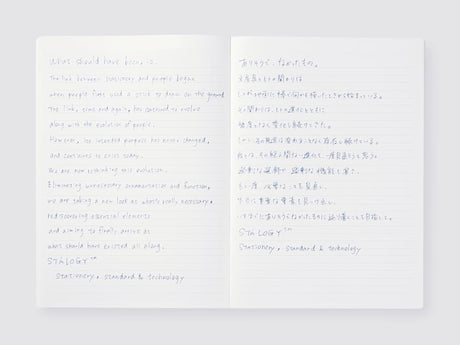 What should have been, is.
The link between stationery and people began
when people first used a stick to draw on the ground.
The link, time and again, has continued to evolve
along with the evolution of people.
However, its essential purpose has never changed,
and continues to exist today.
We are now rethinking this evolution.
Eliminating unnecessary ornamentation and function,
we are taking a new look at what's really necessary,
rediscovering essential elements
and aiming to finally arrive at
what should have existed all along.
STÁLOGY™
Stationery, standard & technology
ありそうで、なかったもの。
文房具とヒトの関わりは
ヒトが地面に棒で何かを描いたときから始まっている。
その関わりは、ヒトの進化とともに
幾度となく変化し続けてきた。
しかし、その本質は変わることなく存在し続けている。
私たちは、その
過剰な装飾や過剰な機能を省き、
もう一度、必要なことを見直し、
さらに重要な要素を見つけ出し、
STÁLOGY™
Stationery, standard & technology